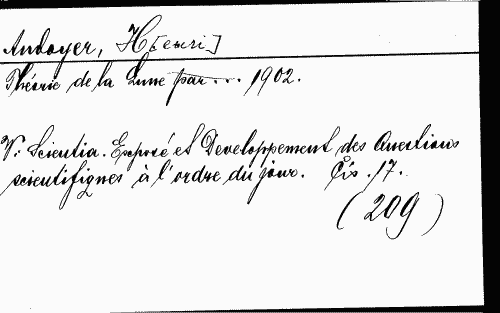 Andoyer, H[enri]
Théorie de la Lune par... 1902.
V: Scientia. Exposé et Developpement des Questions
scientifiques à l'ordre du jour. Čís. 17.
(209)